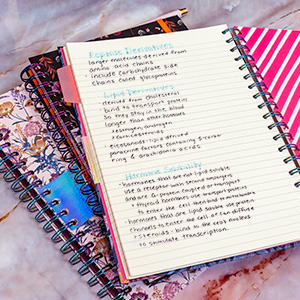 Peptide Derivatives
larger molecules derived from
amino acid chains
· include carbohydrate side
chains called glycoproteins
Lipid Derivatives
- derived from cholesterol
- bind to transport protein
so they stay in the blood
longer than other hormones
estrogens, androgens
corticosteroids
- eicosanoids - lipid derived
paracrine factors containing 5-carbon
ring & arachidonic acids
Hormone Solubility
- hormones that are not lipid soluble
use a receptor with second messengers
and are G-protein coupled or transport
- thyroid hormones use transport proteins
to enter the cell then bind to mitochondria
- hormones that are lipid soluble use protein
channels to enter the cell or can diffuse
· steroids - bind to the cell nucleus
to stimulate transcription.